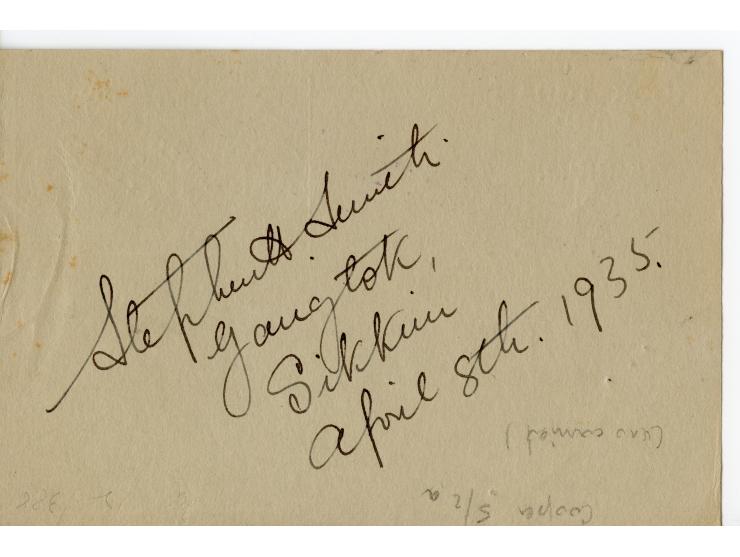 Stephen H. Smith.
Gangtok,
Sikkim
April 8th. 1935.
Cooper 5/2a